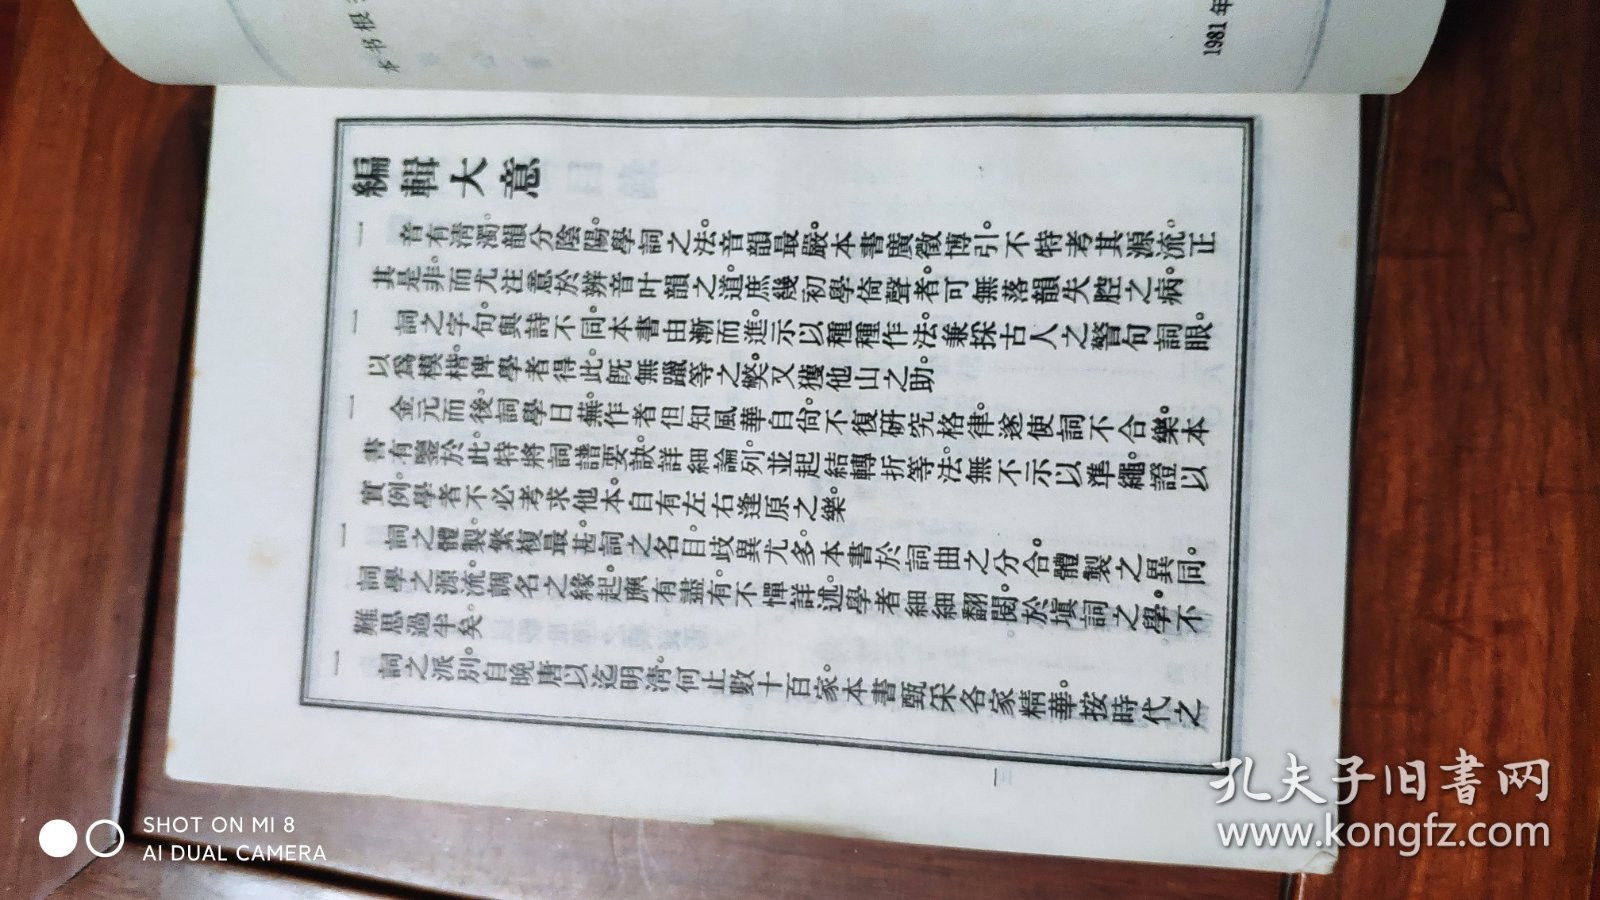 本书根
1981年
編輯大意
一 音有淸濁。韻分陰陽。學詞之法。音韻最嚴。本書廣徵博引。不特考其源流。正
其是非。而尤注意於辨音叶韻之道。庶幾初學倚聲者。可無落韻失腔之病。
一 詞之字句與詩不同。本書由漸而進。示以種種作法。兼採古人之警句詞眼。
以爲模楷。俾學者得此。旣無躐等之獘。又獲他山之助。
一 金元而後。詞學日蕪。作者但知風華自尙。不復硏究格律。遂使詞不合樂。本
書有鑒於此。特將詞譜要訣。詳細論列。並起結轉折等法。無不示以準繩。證以
實例。學者不必考求他本。自有左右逢原之樂。
一 詞之體製。繁複最甚。詞之名目。歧異尤多。本書於詞曲之分合。體製之異同。
詞學之源流。調名之緣起。應有盡有。不憚詳述。學者細細翻閱。於塡詞之學。不
難思過半矣。
一 詞之派別。自晚唐以迄明淸。何止數十百家。本書甄采各家精華。按時代之
一
孔夫子旧书网
www.kongfz.com
SHOT ON MI 8
AI DUAL CAMERA